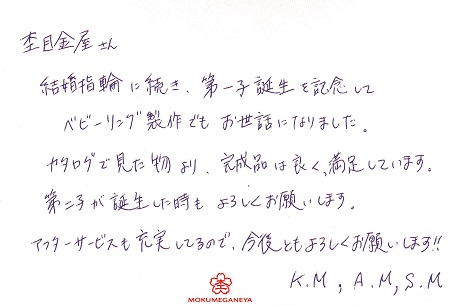 杢目金屋さん
結婚指輪に続き、第一子誕生を記念して
ベビーリング製作でもお世話になりました。
カタログで見た物より、完成品は良く、満足しています。
第二子が誕生した時もよろしくお願いします。
アフターサービスも充実してるので、今後ともよろしくお願いします!!
K.M, A.M, S.M
MOKUMEGANEYA